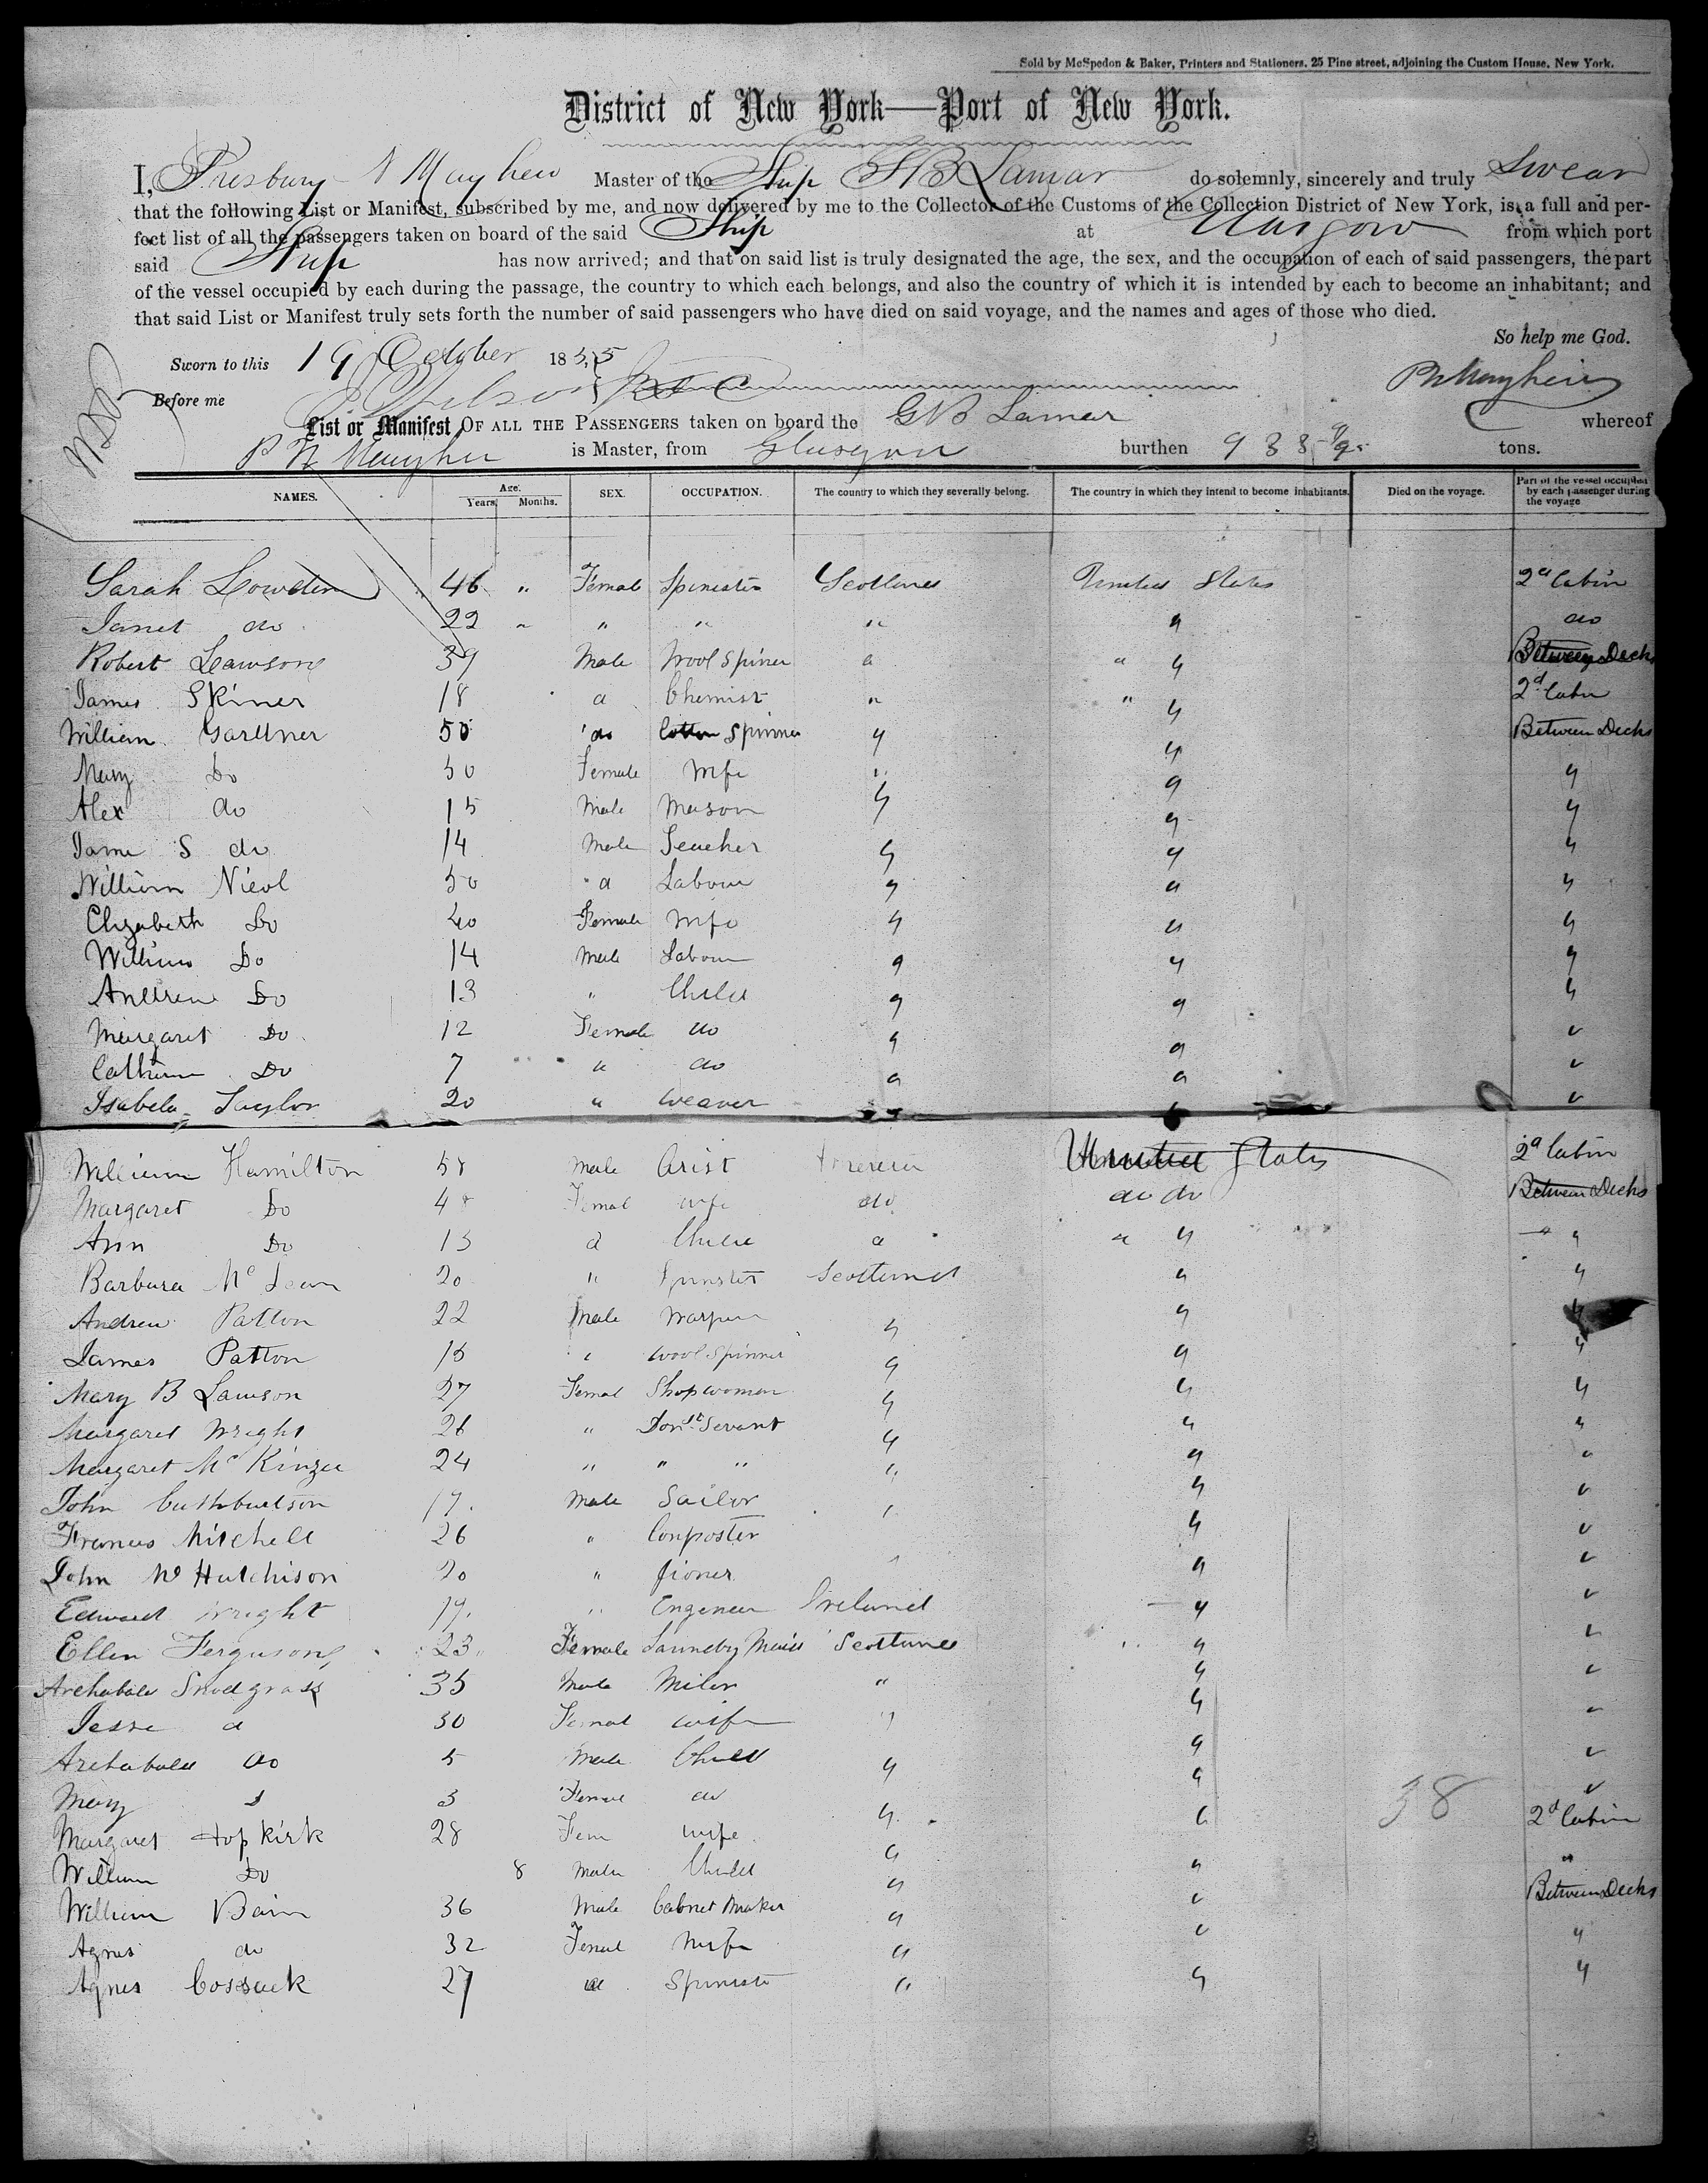 Sold by McSpedon & Baker, Printers and Stationers, 25 Pine street, adjoining the Custom House, New York.
District of New York—Port of New York.
I, Presbury N Mayhew Master of the Ship GB Lamar do solemnly, sincerely and truly Swear
that the following List or Manifest, subscribed by me, and now delivered by me to the Collector of the Customs of the Collection District of New York, is a full and per-
fect list of all the passengers taken on board of the said Ship at Glasgow from which port
said Ship has now arrived; and that on said list is truly designated the age, the sex, and the occupation of each of said passengers, the part
of the vessel occupied by each during the passage, the country to which each belongs, and also the country of which it is intended by each to become an inhabitant; and
that said List or Manifest truly sets forth the number of said passengers who have died on said voyage, and the names and ages of those who died.
So help me God.
Sworn to this 19 October 1855
PN Mayhew
Before me
List or Manifest OF ALL THE PASSENGERS taken on board the GB Lamar whereof
P N Mayhew is Master, from Glasgow burthen 938 tons.
NAMES. Age. Years. Months. SEX. OCCUPATION. The country to which they severally belong. The country in which they intend to become inhabitants. Died on the voyage. Part of the vessel occupied by each passenger during the voyage
Sarah Lowden 46 " Female Spinester Scotland United States 2d Cabin
Janet do 22 " " " " " do
Robert Lawson 39 Male Wool Spiner " " " Between Decks
James Skiner 18 " Chemist " " " 2d Cabin
William Gardner 50 do Cotton Spinner " " Between Decks
Mary Do 50 Female Wife " " "
Alex do 15 Male Mason " " "
Jame S do 14 Male Teacher " " "
William Nicol 50 " Labour " " "
Elizabeth Do 40 Female Wife " " "
William Do 14 Male Labour " " "
Andrew Do 13 " Child " " "
Margaret Do 12 Female do " " "
Cathrine Do 7 " do " " "
Isabela Taylor 20 " Weaver " " "
William Hamilton 58 Male Arist United States 2d Cabin
Margaret Do 48 Femal wife do do do Between Decks
Ann Do 13 " Child " " " "
Barbara Mc Lean 20 " Spinster Scotland " "
Andrew Patton 22 Male Warper " " "
James Patton 15 " Wool Spinner " " "
Mary B Lawson 27 Femal Shopwoman " " "
Margaret Wright 26 " Domst Servant " " "
Margaret Mc Kinzee 24 " " " " " "
John Cuthbertson 17 Male Sailor " " "
Frances Mitchell 26 " Conposter " "
John W Hutchison 20 " Jioner " " "
Edward Wright 19 " Engeneer Ireland " "
Ellen Ferguson 23 Female Laundry Maid Scotland " "
Archabald Snodgrass 35 Male Miler " " "
Jesse d 30 Femal wife " " "
Archabald do 5 Male Child " " "
Mary d 3 Female do " " "
38
Margaret Hopkirk 28 Fem wife " " 2d Cabin
William Do 8 Male Child " " "
William Bain 36 Male Cabnet Maker " " Between Decks
Agnes do 32 Femal Wife " " "
Agnes Cossuck 27 do Spinester " " "